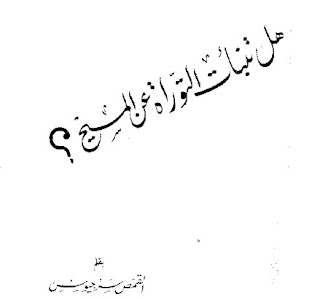 هل تنبأت التوراة عن المسيح ؟
بقلم
القمص سرجيوس